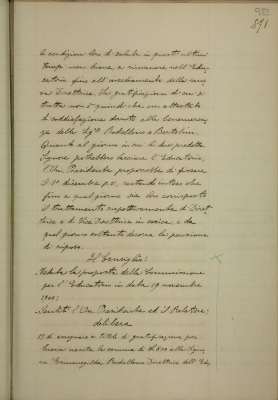 971
le condizioni loro di salute in questi ultimi
tempi non buone, a rimanere nell'Edu-
catorio fino all'insediamento della nuo-
va Direttrice. La gratificazione di cui si
tratta non è quindi che un attestato
di soddisfazione dovuto alle benemeren-
ze delle Sig.e Padellero e Bertolini.
Quanto al giorno in cui le due predette
Signore potrebbero lasciare l'Educatorio,
l'On. Presidente proporrebbe di fissare
il 1º dicembre p.v., restando inteso che
fino a quel giorno sia loro corrisposto
il trattamento rispettivamente di Diret-
trice e di Vice Direttrice in carica, e da
quel giorno soltanto decorra la pensione
di riposo.
Il Consiglio:
Veduta la proposta della Commissione
per l'Educatorio in data 19 novembre
1909;
Sentiti l'On. Presidente ed il Relatore;
delibera
1º di assegnare a titolo di gratificazione per
buona uscita la somma di L. 500 alla Signo-
ra Ermenegilda Padellero Direttrice dell'Edu-